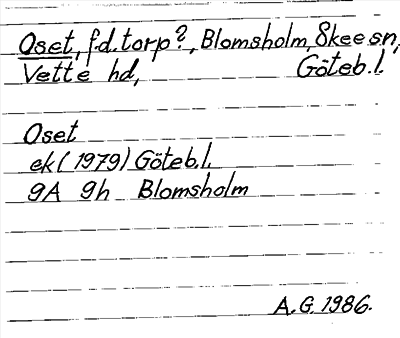 Oset, f.d. torp?, Blomsholm, Skee sn,
Vette hd, Göteb.l.
Oset
ek (1979) Göteb.l.
9A 9h Blomsholm
A.G. 1986.